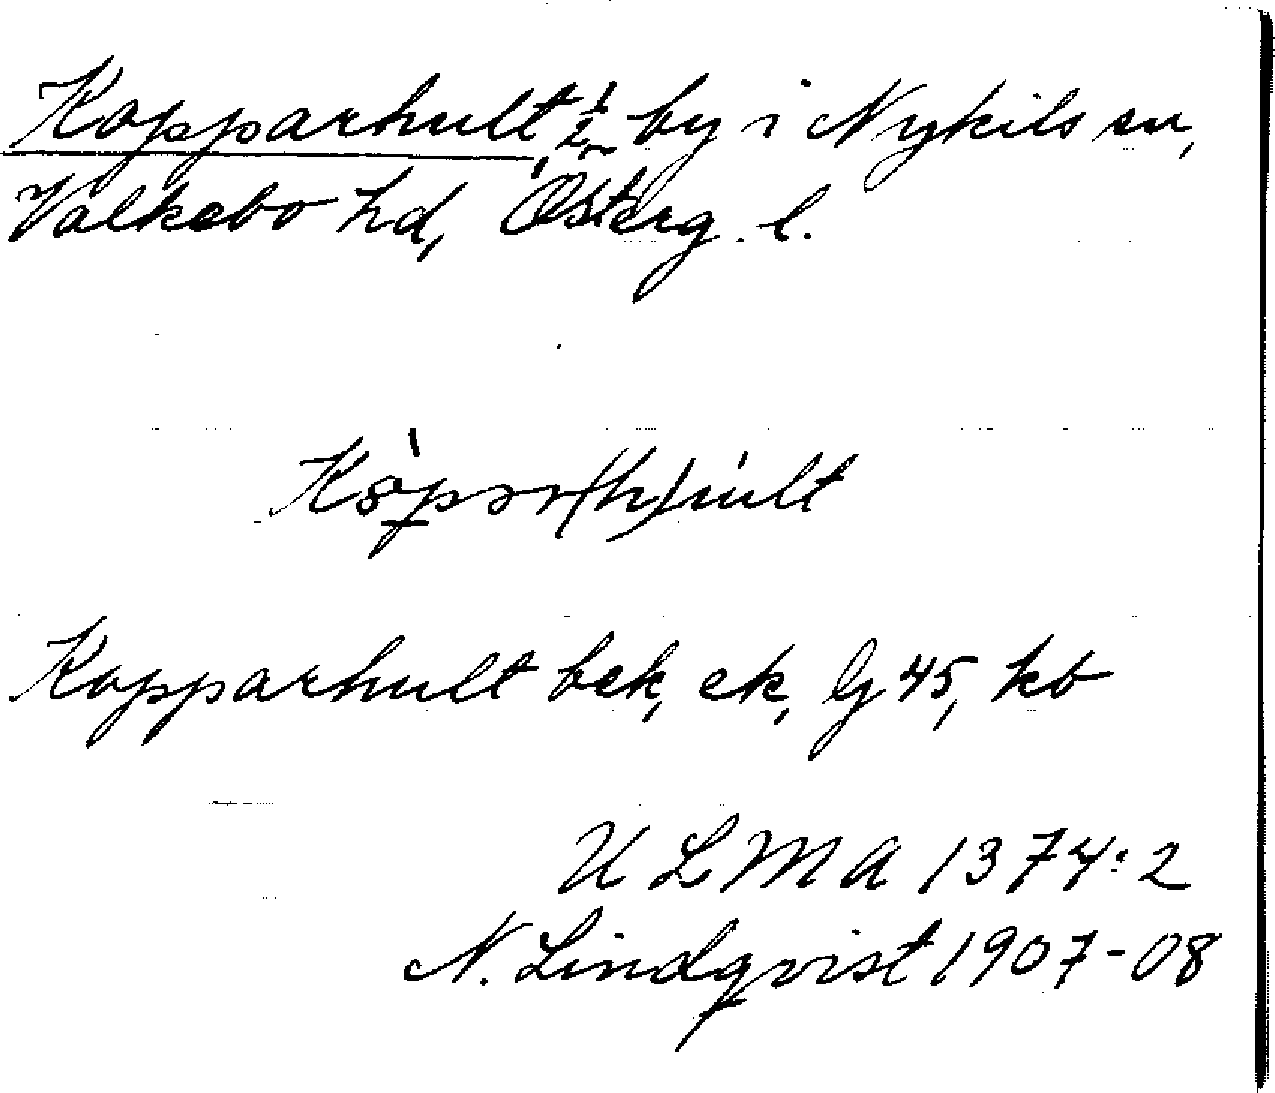 Kopparhult, 1/2 by i Nykils sn,
Valkebo hd, Österg. l.
Köpər(h)ult
Kopparhult bek, ek, lj 45, kb
ULMA 1374:2
N. Lindqvist 1907-08